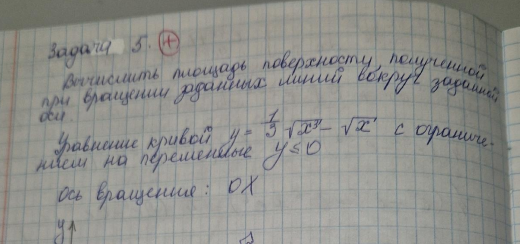 Задача 5. +
Вычислить площадь поверхности, полученной
при вращении заданных линий вокруг заданной
оси.
Уравнение кривой y = 1/3 √x³ - √x с ограниче-
нием на переменные y ≤ 0
ось вращения: OX
y